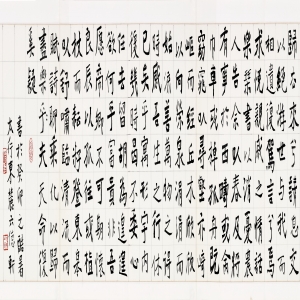 以絕游世與我而
相違復駕言兮焉
求悅親戚之情話
樂琴書以消憂農
人告余以春及將
有事於西疇或命
巾車或棹孤舟既
窈窕以尋壑亦崎
嶇而經丘木欣欣
以向榮泉涓涓而
始流善萬物之得
時感吾生之行休
已矣乎寓形宇內
復幾時曷不委心
任去留胡為乎遑
欲何之富貴非吾
願帝鄉不可期懷
良辰以孤往或植
杖而耘耔登東皋
以舒嘯臨清流而
賦詩聊乘化以歸
盡樂夫天命復
奚疑
書於癸卯之